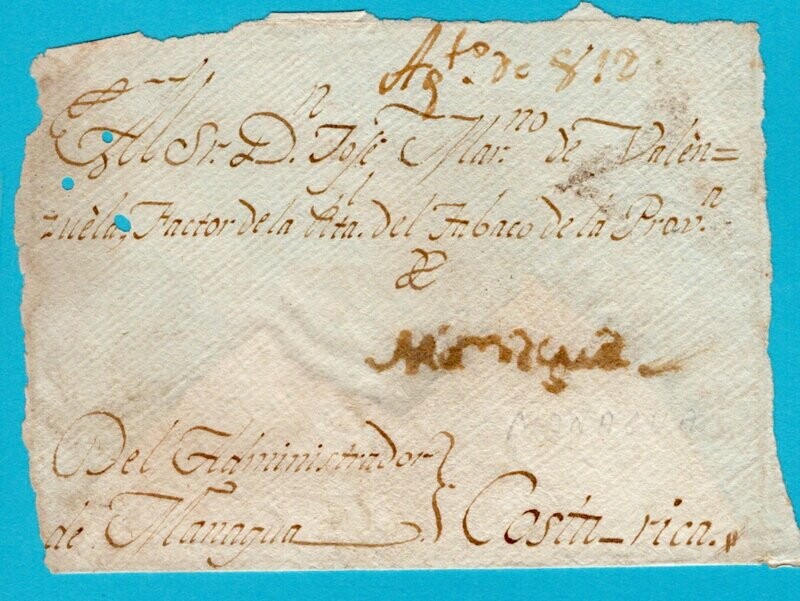 Agto. de 812
Al Sr. Dn. José Marno. de Valen=
zuela, Factor de la Rta. del Tabaco de la Prova.
de
Managua
MANAGUA
Del Administrador
de Managua
Costa-rica.